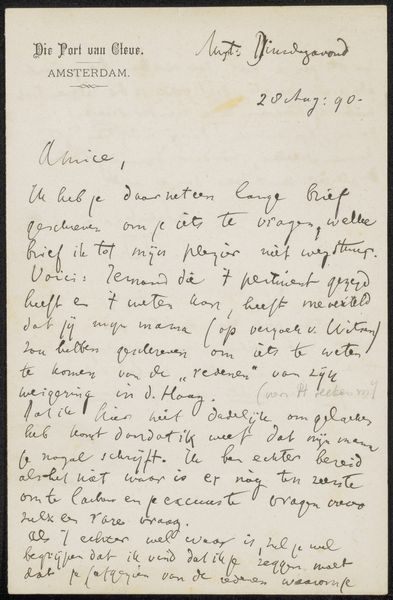 Die Port van Cleve.
AMSTERDAM.
Dinsdagavond
28 Aug: 90.
Amice,
Ik heb je daarnet een lange brief
geschreven om je iets te vragen, welke
brief ik tot mijn plezier niet wegstuur.
Voici: Iemand die 't pertinent gezegd
heeft en 't weten kan, heeft me verteld
dat jij mijn mama (op verzoek v. Witsen)
zou hebben geschreven om iets te weten
te komen van de "redenen" van zijn
weigering in d. Haag.
Dat ik hier niet dadelijk om gelachen
heb komt doordat ik weet dat mijn mama
je nogal schrijft. Ik ben echter bereid
als het niet waar is er nog ten zeerste
om te lachen en je excuus te vragen voor
zulk een rare vraag.
Als 't echter wel waar is, zul je wel
begrijpen dat ik vind dat ik je zeggen moet
dat je van de redenen waarom je